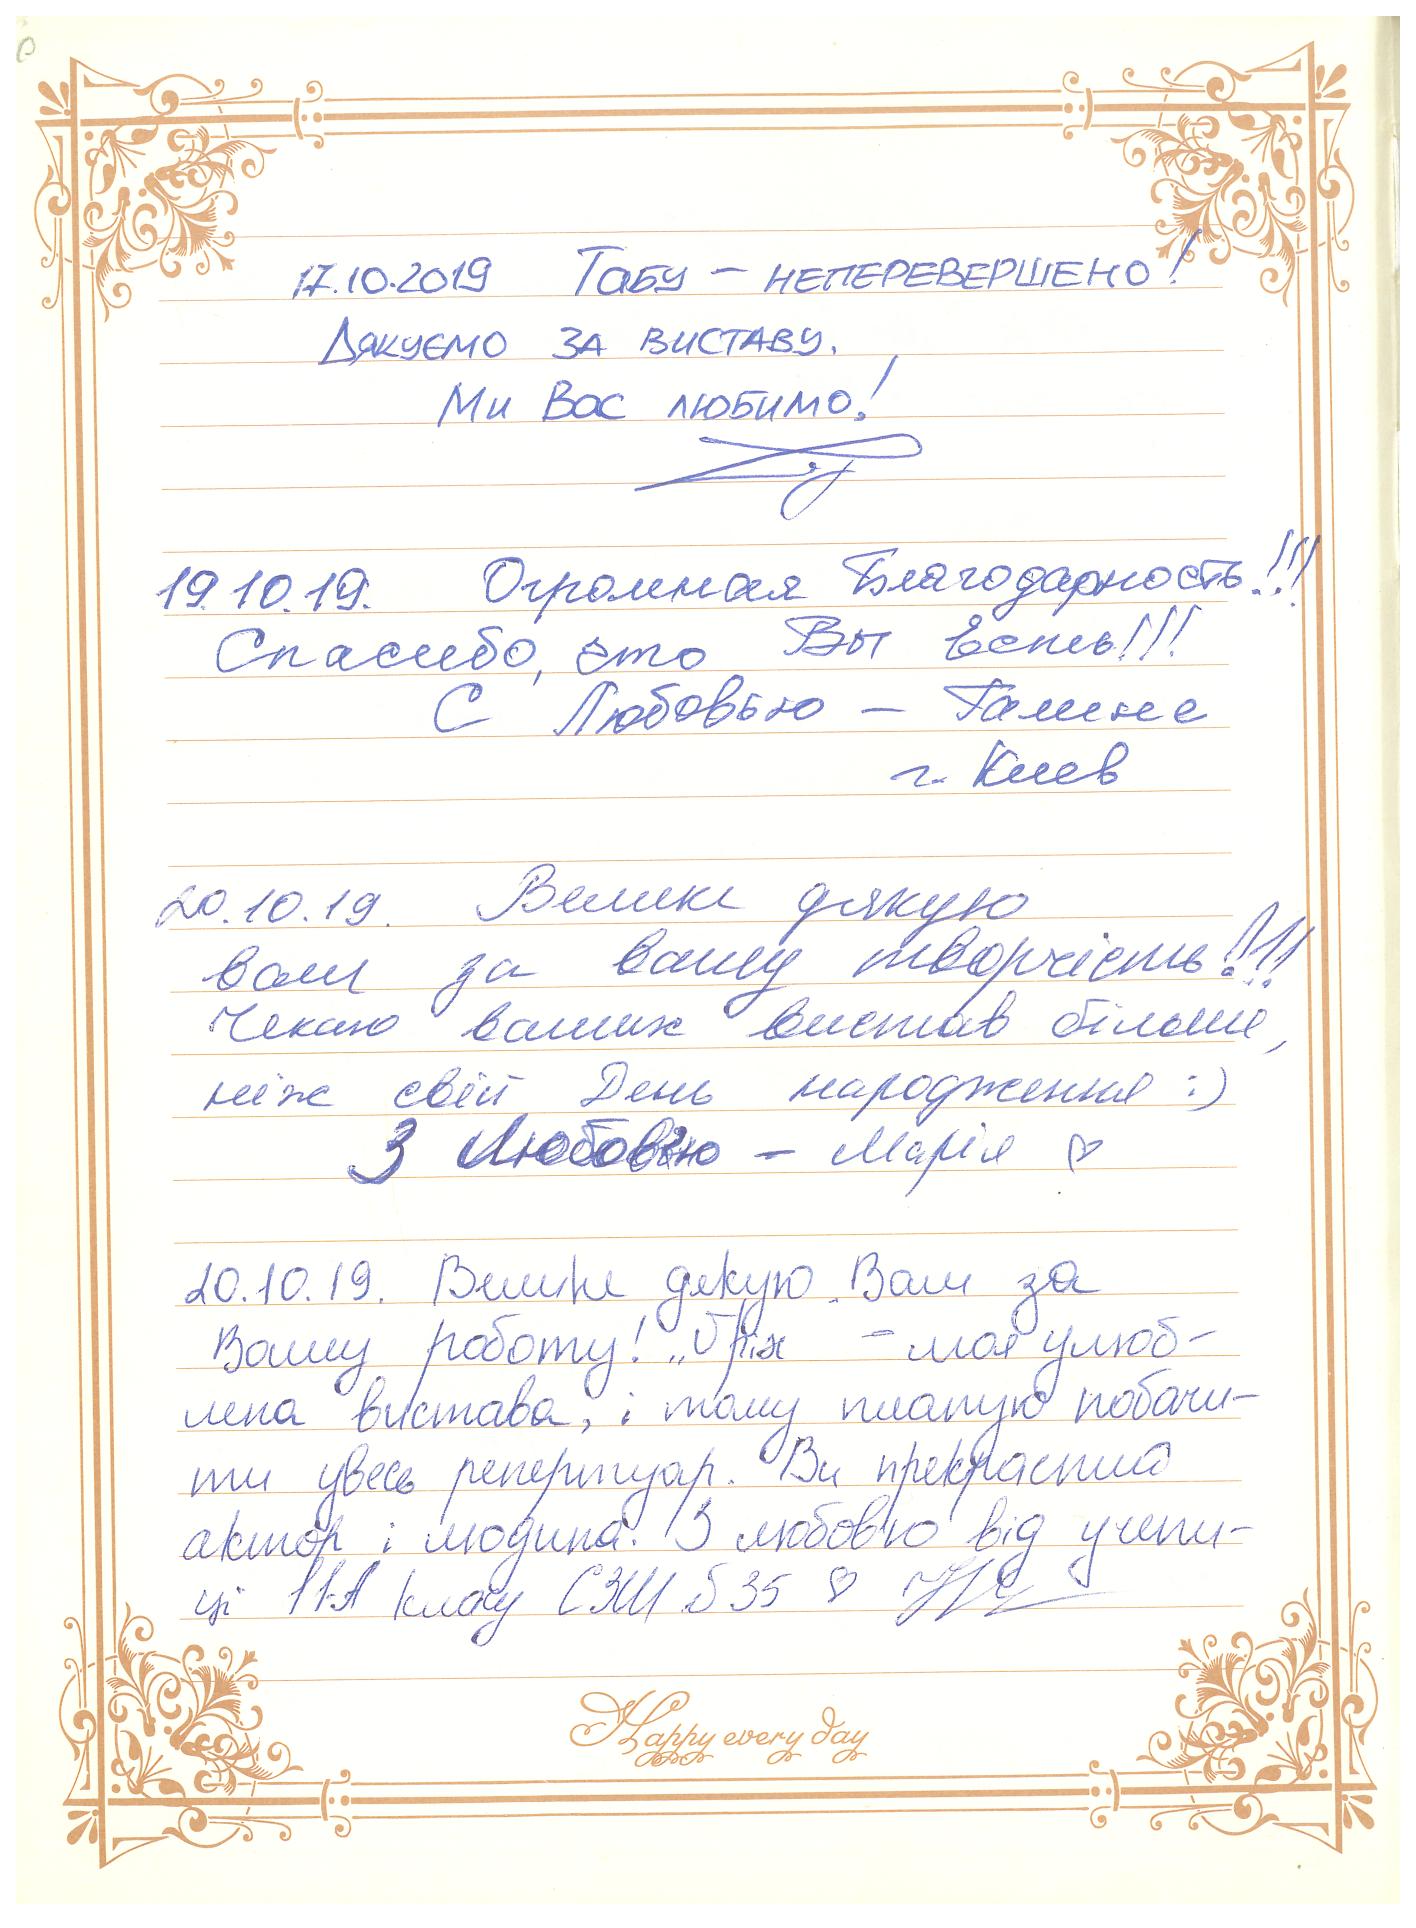 17.10.2019 Табу – неперевершено!
Дякуємо за виставу.
Ми Вас любимо!
19.10.19. Огромная Благодарность!!!
Спасибо, что Вы Есть!!!
С Любовью – Галина
г. Киев
20.10.19. Велике дякую
вам за вашу творчість!!!
Чекаю ваших вистав більше,
ніж свій День народження :)
З Любов'ю – Марія ♡
20.10.19. Велике дякую Вам за
Вашу роботу! „Гріх – моя улюб-
лена вистава, і тому планую побачи-
ти увесь репертуар. Ви прекрасний
актор і людина. З любов'ю від учени-
ці 11-А класу СЗШ 35 ♡
Happy every day